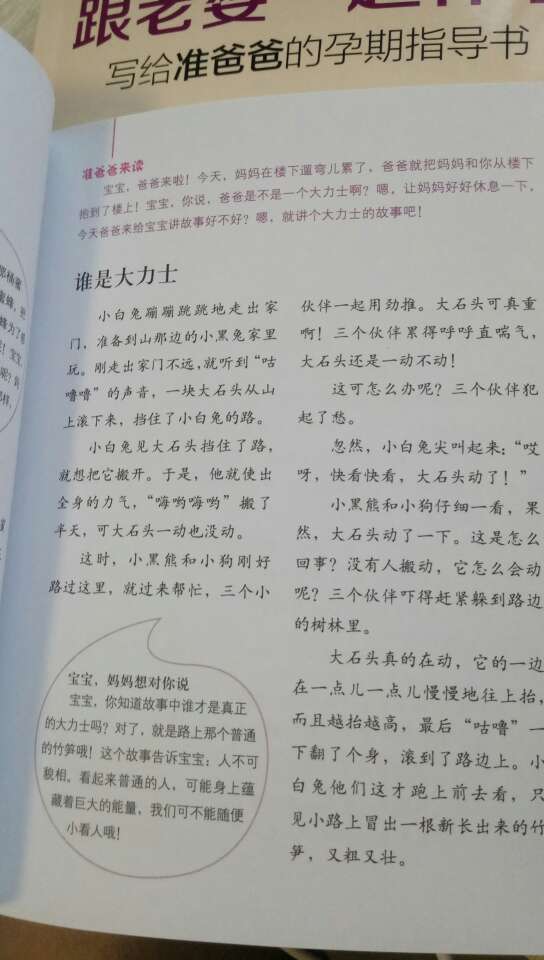 跟老婆一起
写给准爸爸的孕期指导书
准爸爸来读
宝宝，爸爸来啦！今天，妈妈在楼下遛弯儿累了，爸爸就把妈妈和你从楼下
抱到了楼上！宝宝，你说，爸爸是不是一个大力士啊？嗯，让妈妈好好休息一下，
今天爸爸来给宝宝讲故事好不好？嗯，就讲个大力士的故事吧！
谁是大力士
小白兔蹦蹦跳跳地走出家
门，准备到山那边的小黑兔家里
玩。刚走出家门不远，就听到“咕
噜噜”的声音，一块大石头从山
上滚下来，挡住了小白兔的路。
小白兔见大石头挡住了路，
就想把它搬开。于是，他就使出
全身的力气，“嗨哟嗨哟”搬了
半天，可大石头一动也没动。
这时，小黑熊和小狗刚好
路过这里，就过来帮忙，三个小
伙伴一起用劲推。大石头可真重
啊！三个伙伴累得呼呼直喘气，
大石头还是一动不动！
这可怎么办呢？三个伙伴犯
起了愁。
忽然，小白兔尖叫起来：“哎
呀，快看快看，大石头动了！”
小黑熊和小狗仔细一看，果
然，大石头动了一下。这是怎么
回事？没有人搬动，它怎么会动
呢？三个伙伴吓得赶紧躲到路边
的树林里。
大石头真的在动，它的一边
在一点儿一点儿慢慢地往上抬，
而且越抬越高，最后“咕噜”一
下翻了个身，滚到了路边上。小
白兔他们这才跑上前去看，只
见小路上冒出一根新长出来的竹
笋，又粗又壮。
宝宝，妈妈想对你说
宝宝，你知道故事中谁才是真正
的大力士吗？对了，就是路上那个普通
的竹笋哦！这个故事告诉宝宝：人不可
貌相，看起来普通的人，可能身上蕴
藏着巨大的能量，我们可不能随便
小看人哦！